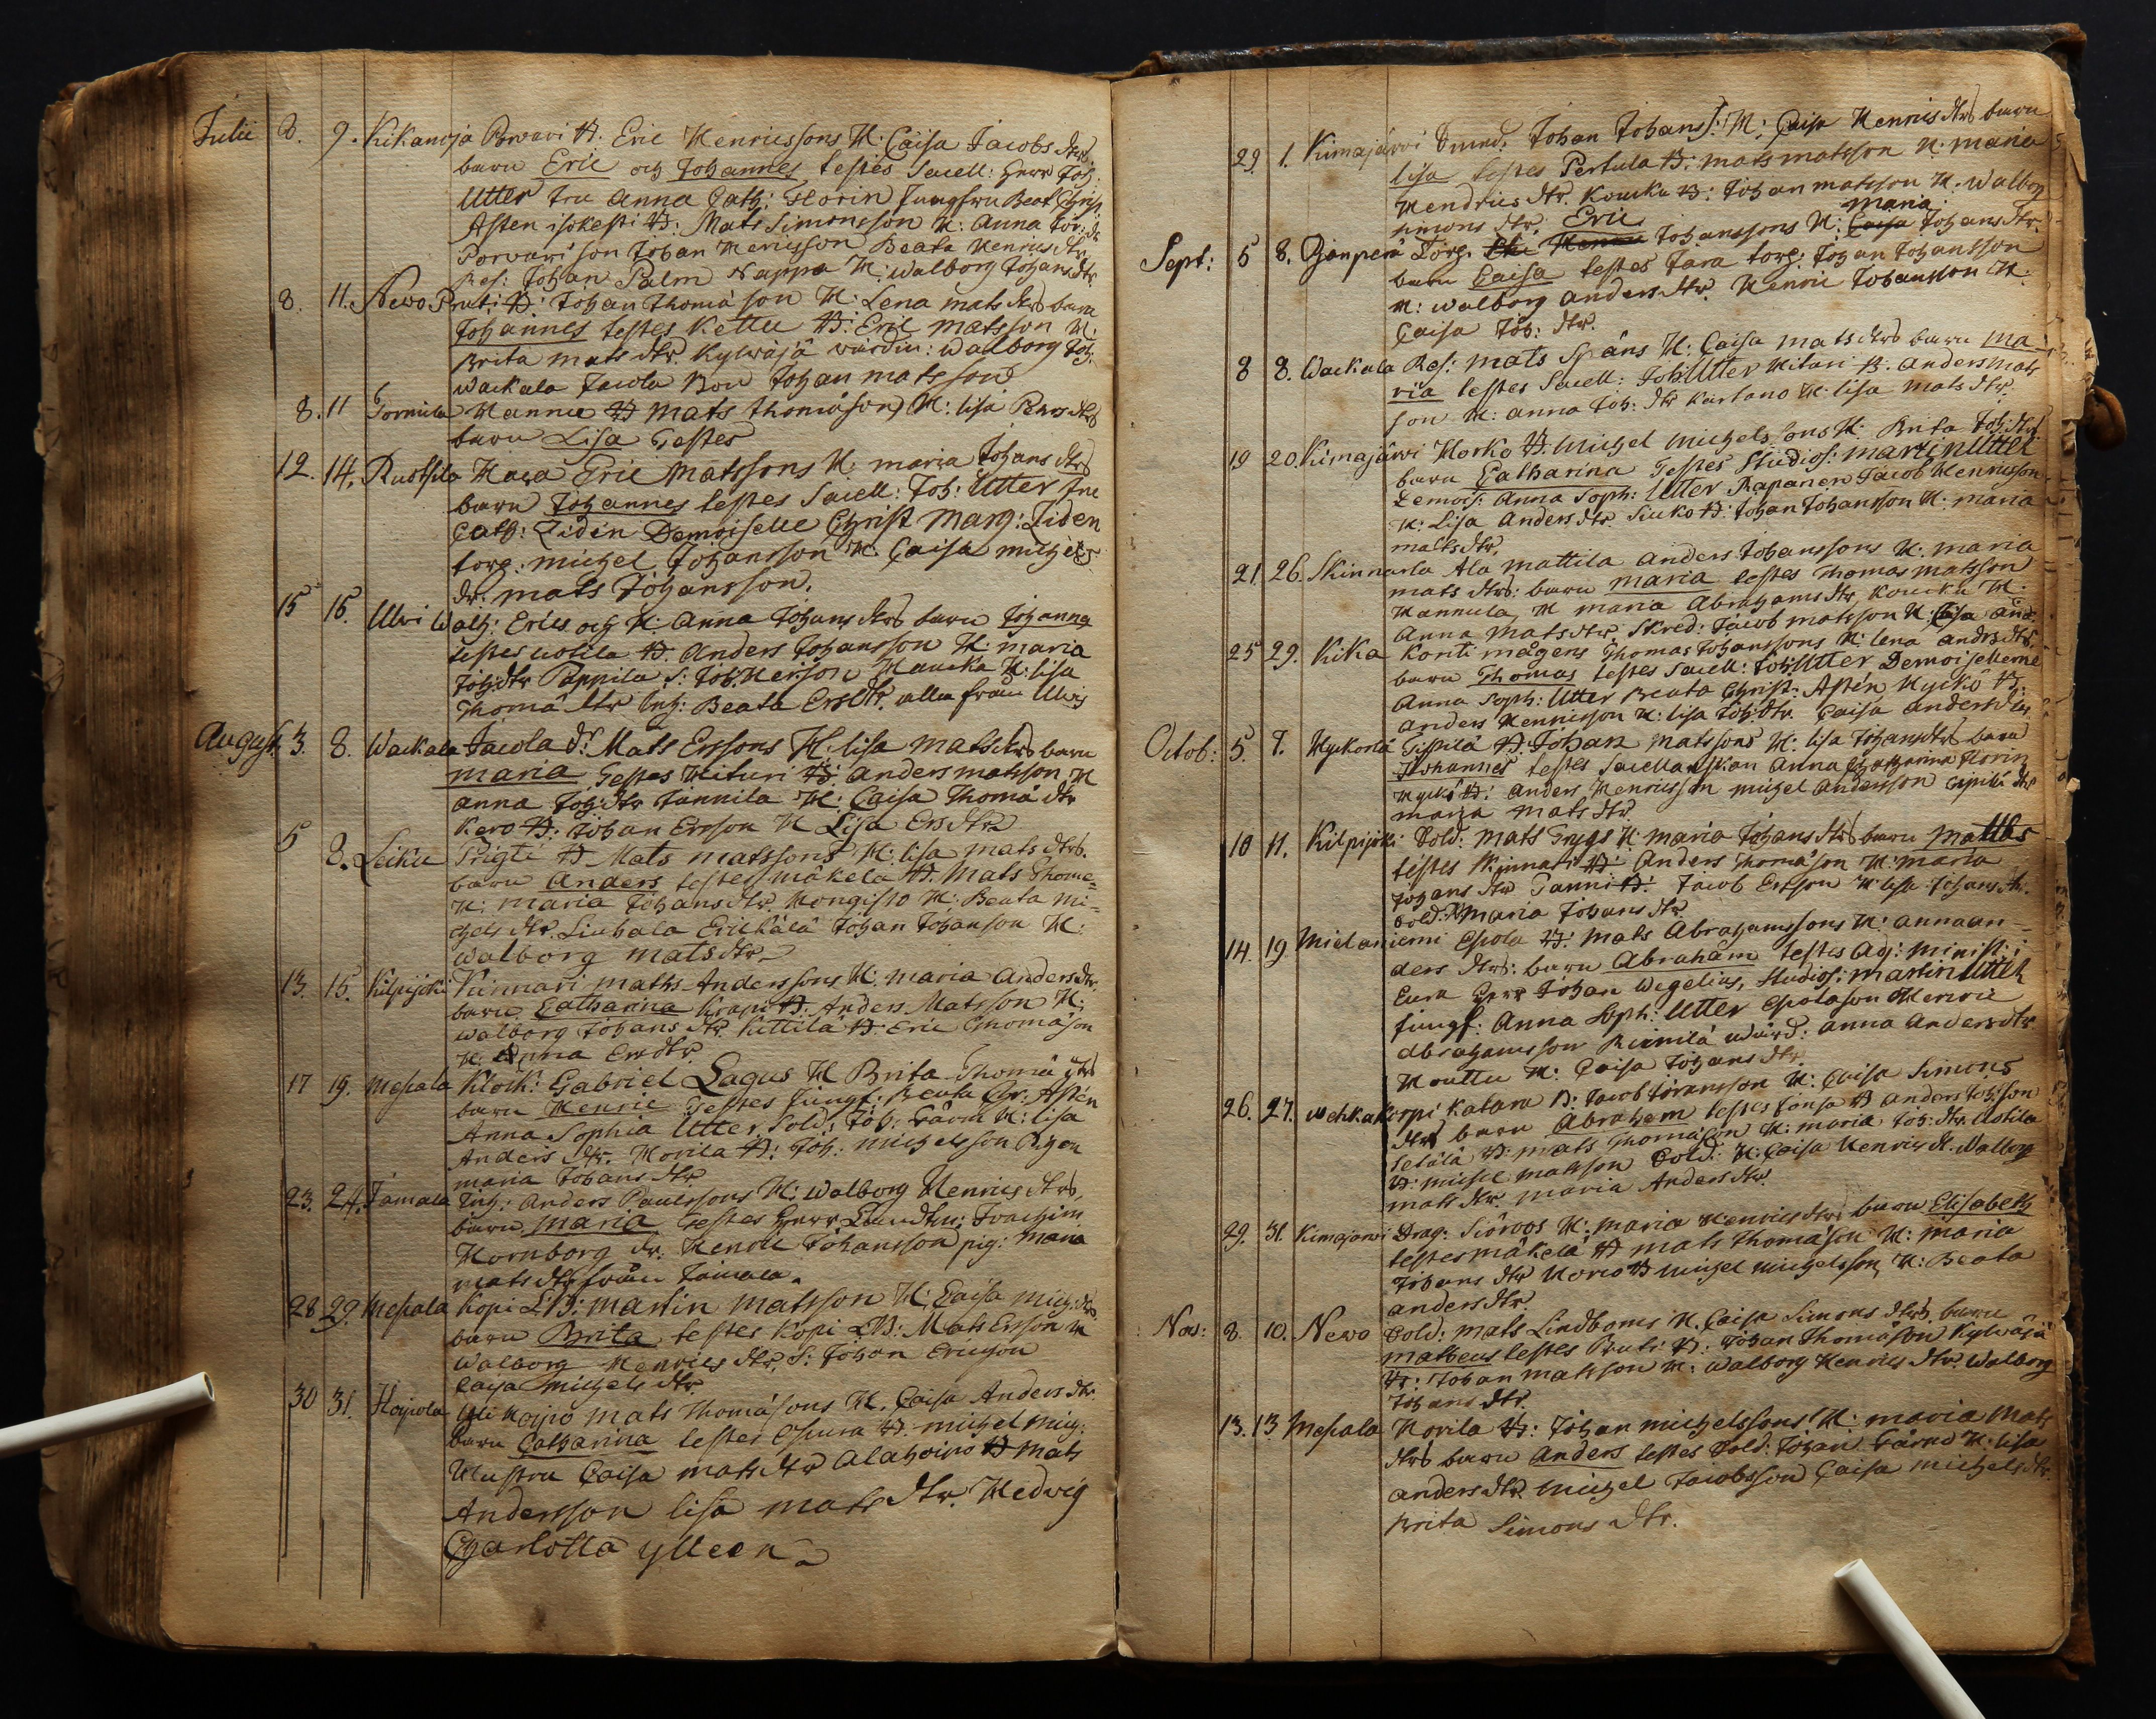 Julii 8. 9. Kikanoja Porvari B. Eric Henricssons H: Caisa Jacobs dtrs
barn Eric och Johannes testes Sacell: Herr Joh:
Utter fru Anna Cath: Florin Jungfru Beat Christ
Asten isokesti B: Mats Simonsson H: Anna
Porvari son Johan Henricsson Beata Henrics dtr
Res: Johan Palm Nappa H: Walborg Johans dtr
8. 11. Newo Pruti B: Johan Thomæson H: Lena mats dtrs barn
Johannes testes Kettu B: Eric matsson H:
Brita mats dtr. Kylwäjä wärdin: Walborg Joh:
Wackala Jacola Bon Johan matsson
8. 11 Tornula Hannu B mats thomæsons H: lisa Pehrs dtrs
barn Lisa Testes
12. 14. Ruotsila Eric Matssons H: maria Johans dtrs
barn Johannes testes Sacell: Joh: Utter fru
Cath: Ziden Demoiselle Christ Marg: Ziden
torp: michel Johansson H: Caisa michels
dr: mats Johansson.
15 16. Ulvi Walh: Erics och H: Anna Johans dtrs barn Johanna
testes uotila B. Anders Johansson H: maria
Joh: dtr Pappila S: Joh: Henson Haucka H: lisa
Thomæ dtr Inh: Beata Ers dtr. alla från Ulvi
August. 3. 8. Wackala Jacola dr: Mats Erssons H: lisa mats dtrs barn
maria Testes Hituri B: anders matsson H
anna Joh: dtr Jannila H: Caisa Thomæ dtr
Kero B: Johan Ersson H Lisa Ers dtr
5 8. Leiku Prigti B Mats matssons H: lisa mats dtrs.
barn Anders testes mäkelä B. Mats Thome=
H: maria Johans dtr. Hongisto H: Beata mi=
chels dtr. Liuhala Erickälä Johan Johanson H:
Walborg mats dtr
13. 15. Kilpijoki Kinnari maths Anderssons H: maria Anders dtr.
barn Catharina Krapi B: Anders Matsson H:
Walborg Johans dtr. Kittilä B: Eric Thomæson
H: Anna Ers dtr
17 19. Mepala Klock: Gabriel Lagus H Brita Thomæ dtrs
barn Henric Testes Jungf: Beata Chr: Astén
Anna Sophia Utter, Sold: Joh: Färm H: lisa
Anders dtr. Horila B: Joh: michelsson Pigan
maria Johans dtr
23. 24. Jämälä Inh: Anders Paulssons H: Walborg Henrics dtrs,
barn maria Testes Herr Länsm: Joachim
Hornborg dr: Henric Johansson pig: maria
mats dtr från Jämälä.
28 29. Mepala Kopi LB: Martin Matsson H: Caisa mich: dtrs
barn Brita testes Kopi LB: Mats Ersson H
Walborg Henrics dtr S: Johan Ericsson
Caisa Michels dtr
30 31. Hoipola Yli Hoipo Mats Thomæsons H. Caisa Anders dtr.
barn Catharina testes B. michel mich:
Caisa mats dtr Alahoipo B mats
Andersson lisa mats dtr. Hedvig
Charlotta ylleen
29. 1. Kimajärvi Johan Johans s: H: Caisa Henrics dtrs barn
lisa testes Pertula B: mats matsson H: maria
Hendrics dtr. Koucku B: Johan matsson H: Walborg
simons dtr.
Sept: 5 8. Pjänperä Torp. Eric Johanssons H: maria Johans dtr.
barn Caisa testes Jara torp: Johan Johansson
H: walborg anders dtr. Henric Johansson H:
Caisa Joh: dtr.
8 8. Wackala Res: mats Späns H: Caisa mats dtrs barn ma-
ria testes Sacell: Joh: Utter Hituri B. anders mats
son H: anna Joh: dtr Kartano H: lisa mats dtr.
19 20. Kimajärvi Horko B. Michel Michelssons H: Brita Joh: dtrs
barn Catharina Testes Studios: martin Utter
Demois: Anna Soph: Utter Rapanen Jacob Henricsson
H: Lisa Anders dtr Siuko B: Johan Johansson H: maria
mats dtr.
21. 26. Skinnarla Ala mattila Anders Johanssons H: maria
mats dtrs: barn maria testes Thomas matsson
Hannula H maria Abrahams dtr, Koucku H
Anna Mats dtr. Skred: Jacob matsson H: Caisa and:
25 29. Kika Konti mågens Thomas Johanssons H: lena andrs dtrs.
barn Thomas testes Sacell: Joh: Utter Demoisellerne
Anna Soph: Utter Beata Christ: Astén Hyckö B:
Anders Henricsson H: lisa Joh: dtr. Caisa anders dtr.
Octob: 5. 7. Hyckölä Tispilä B: Johan Matssons H: lisa Johans dtrs barn
Johannes testes Sacellanskan Anna Catharina Florin
Hyckö B: anders Henricsson michel andersson
maria mats dtr
10 11. Kilpijoki Sold: mats Tryggs H: maria Johans dtrs barn matths
testes Kinnari B: Anders Thomæson H: maria
Johans dtr Tanni B: Jacob Ersson H: lisa Johans dtr.
Sold: H: Maria Johans dtr
14. 19. Mielaniemi Espola B: Mats Abrahamssons H: anna an-
ders dtrs: barn Abraham testes Adj: Minist: i
Eura Herr Johan Wegelius, Studios: Martin Utter
Jungf: Anna Soph: Utter Henric
Abrahamsson Rinnilä wärd: anna Anders dtr
Houttu H: Caisa Johans dtr
26. 27. Wehkakorpi Katara B: Jacob Göransson H: Caisa Simons
dtrs barn Abrahem testes Jonsa B anders Joh: son
Setälä B: mats Thomæson H: maria Joh: dtr. uotila
B: michel matsson Sold: H: Caisa Henrics dt. Walborg
mats dtr. maria Anders dtr.
29. 31. Kimajärvi Drag: Siöroos H: maria Henrics dtrs barn Elisabeth
testes mäkelä B mats Thomæson H: maria
Johans dtr Horco B Michel Michelsson, H: Beata
anders dtr.
Nov: 8. 10. Newo Sold: mats Lindboms H. Caisa Simons dtrs barn
matheus testes Pruti B: Johan Thomæson Kylwäjä
B: Johan matsson H: Walborg Henrics dtr. Walborg
Johans dtr.
13. 13 Mepala Horila B: Johan michelssons H: maria Mats
dtrs barn Anders testes Sold: Johan Färm H: lisa
anders dtr. Michel Jacobsson Caisa michels dtr
Brita Simons dtr.